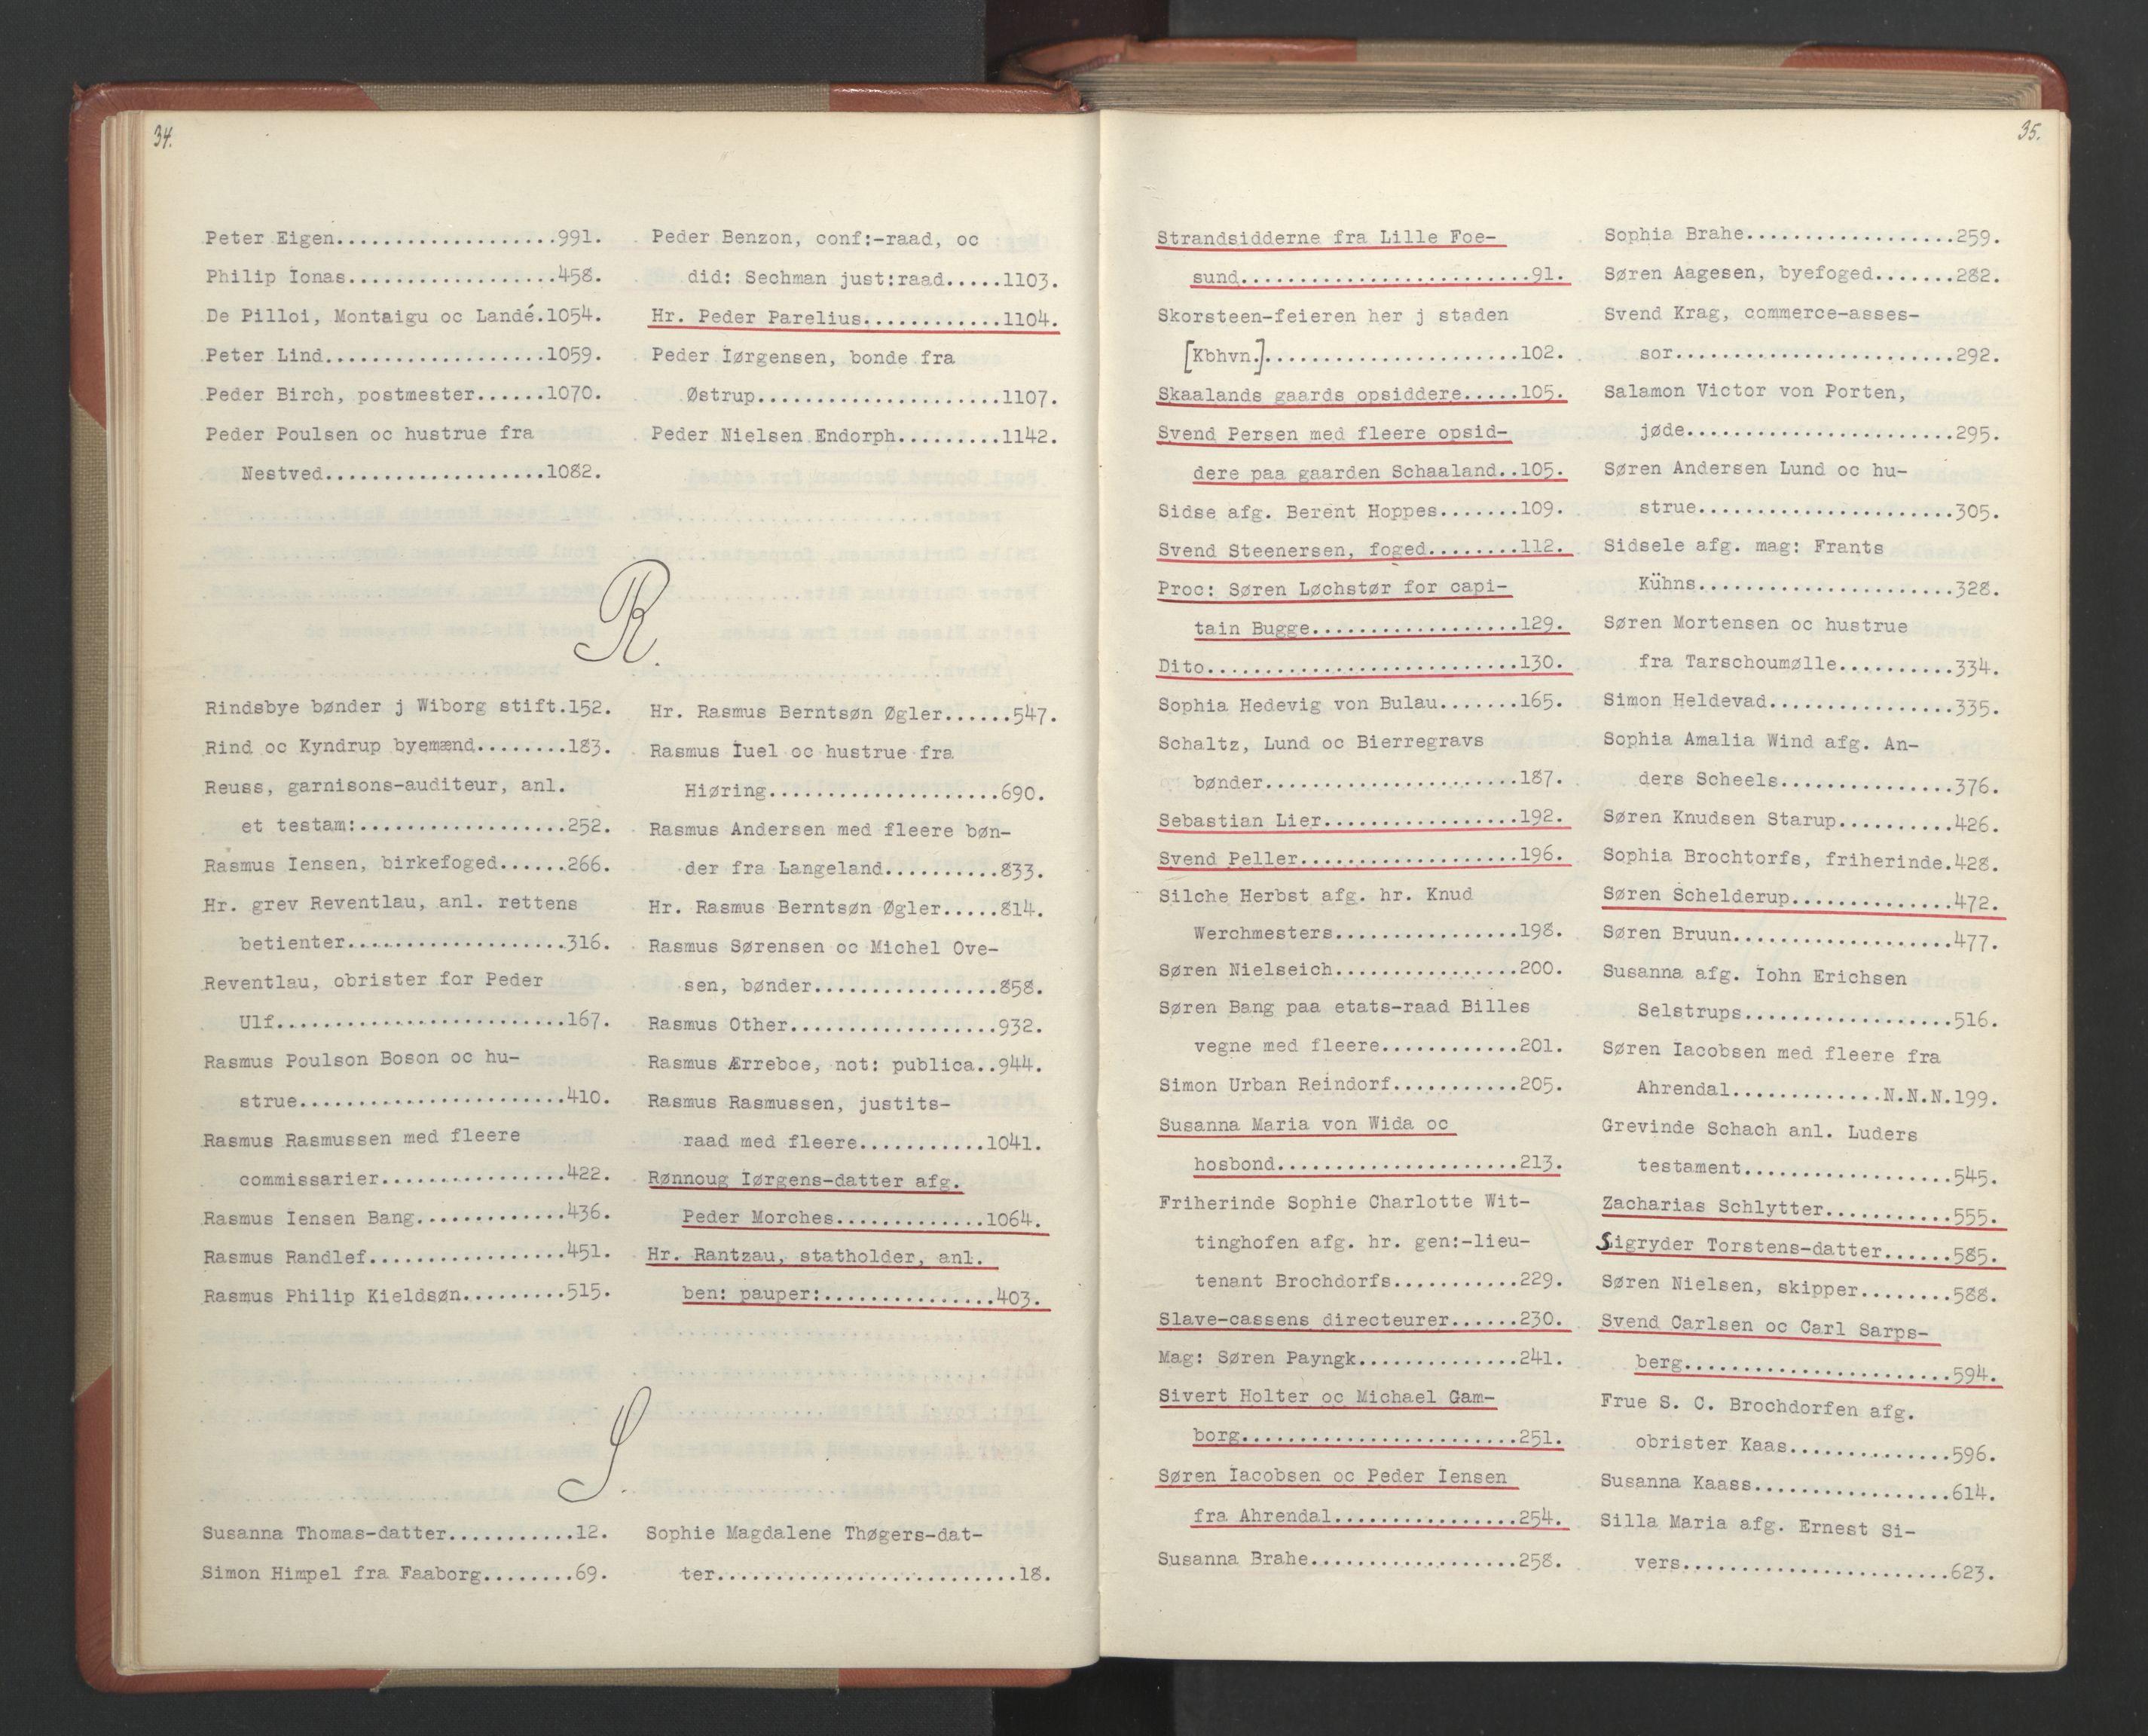 34.
Peter Eigen....................991.
Philip Ionas...................458.
De Pilloi, Montaigu oc Landé.1054.
Peter Lind....................1059.
Peder Birch, postmester......1070.
Peder Poulsen oc hustrue fra
Nestved....................1082.
Peder Benzon, conf:-raad, oc
did: Sechman just:raad.....1103.
Hr. Peder Parelius............1104.
Peder Iørgensen, bonde fra
Østrup......................1107.
Peder Nielsen Endorph.........1142.
R.
Rindsbye bønder j Wiborg stift.152.
Rind oc Kyndrup byemænd........183.
Reuss, garnisons-auditeur, anl.
et testam:...................252.
Rasmus Iensen, birkefoged......266.
Hr. grev Reventlau, anl. rettens
betienter....................316.
Reventlau, obrister for Peder
Ulf..........................167.
Rasmus Poulson Boson oc hu-
strue........................410.
Rasmus Rasmussen med fleere
commissarier.................422.
Rasmus Iensen Bang.............436.
Rasmus Randlef..................451.
Rasmus Philip Kieldsøn.........515.
Hr. Rasmus Berntsøn Øgler......547.
Rasmus Iuel oc hustrue fra
Hiøring.....................690.
Rasmus Andersen med fleere bøn-
der fra Langeland..........833.
Hr. Rasmus Berntsøn Øgler.....814.
Rasmus Sørensen oc Michel Ove-
sen, bønder.................858.
Rasmus Other...................932.
Rasmus Ærreboe, not: publica..944.
Rasmus Rasmussen, justits-
raad med fleere............1041.
Rønnoug Iørgens-datter afg.
Peder Morches..............1064.
Hr. Rantzau, statholder, anl.
ben: pauper:................403.
S.
Susanna Thomas-datter...........12.
Simon Himpel fra Faaborg........69.
Sophie Magdalene Thøgers-dat-
ter...........................18.
35.
Strandsidderne fra Lille Foe-
sund..........................91.
Skorsteen-feieren her j staden
[Kbhvn.].......................102.
Skaalands gaards opsiddere.....105.
Svend Persen med fleere opsid-
dere paa gaarden Schaaland..105.
Sidse afg. Berent Hoppes.......109.
Svend Steenersen, foged........112.
Proc: Søren Løchstør for capi-
tain Bugge...................129.
Dito...........................130.
Sophia Hedevig von Bulau.......165.
Schaltz, Lund oc Bierregravs
bønder.......................187.
Sebastian Lier.................192.
Svend Peller...................196.
Silche Herbst afg. hr. Knud
Werchmesters.................198.
Søren Nielseich................200.
Søren Bang paa etats-raad Billes
vegne med fleere............201.
Simon Urban Reindorf...........205.
Susanna Maria von Wida oc
hosbond......................213.
Friherinde Sophie Charlotte Wit-
tinghofen afg. hr. gen:-lieu-
tenant Brochdorfs...........229.
Slave-cassens directeurer......230.
Mag: Søren Payngk..............241.
Sivert Holter oc Michael Gam-
borg.........................251.
Søren Iacobsen oc Peder Iensen
fra Ahrendal................254.
Susanna Brahe..................258.
Sophia Brahe...................259.
Søren Aagesen, byefoged.......282.
Svend Krag, commerce-asses-
sor.........................292.
Salamon Victor von Porten,
jøde........................295.
Søren Andersen Lund oc hu-
strue.......................305.
Sidsele afg. mag: Frants
Kühns.......................328.
Søren Mortensen oc hustrue
fra Tarschoumølle..........334.
Simon Heldevad.................335.
Sophia Amalia Wind afg. An-
ders Scheels................376.
Søren Knudsen Starup..........426.
Sophia Brochtorfs, friherinde.428.
Søren Schelderup..............472.
Søren Bruun....................477.
Susanna afg. Iohn Erichsen
Selstrups...................516.
Søren Iacobsen med fleere fra
Ahrendal.............N.N.N.199.
Grevinde Schach anl. Luders
testament...................545.
Zacharias Schlytter...........555.
Sigryder Torstens-datter......585.
Søren Nielsen, skipper........588.
Svend Carlsen oc Carl Sarps-
berg........................594.
Frue S. C. Brochdorfen afg.
obrister Kaas...............596.
Susanna Kaass..................614.
Silla Maria afg. Ernest Si-
vers........................623.